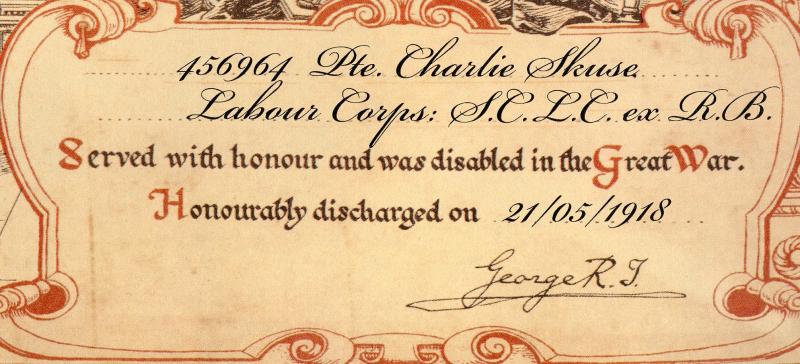 456964 Pte. Charlie Skuse
Labour Corps: S.C.L.C. ex R.B.
Served with honour and was disabled in the Great War.
Honourably discharged on 21/05/1918
George R.I.